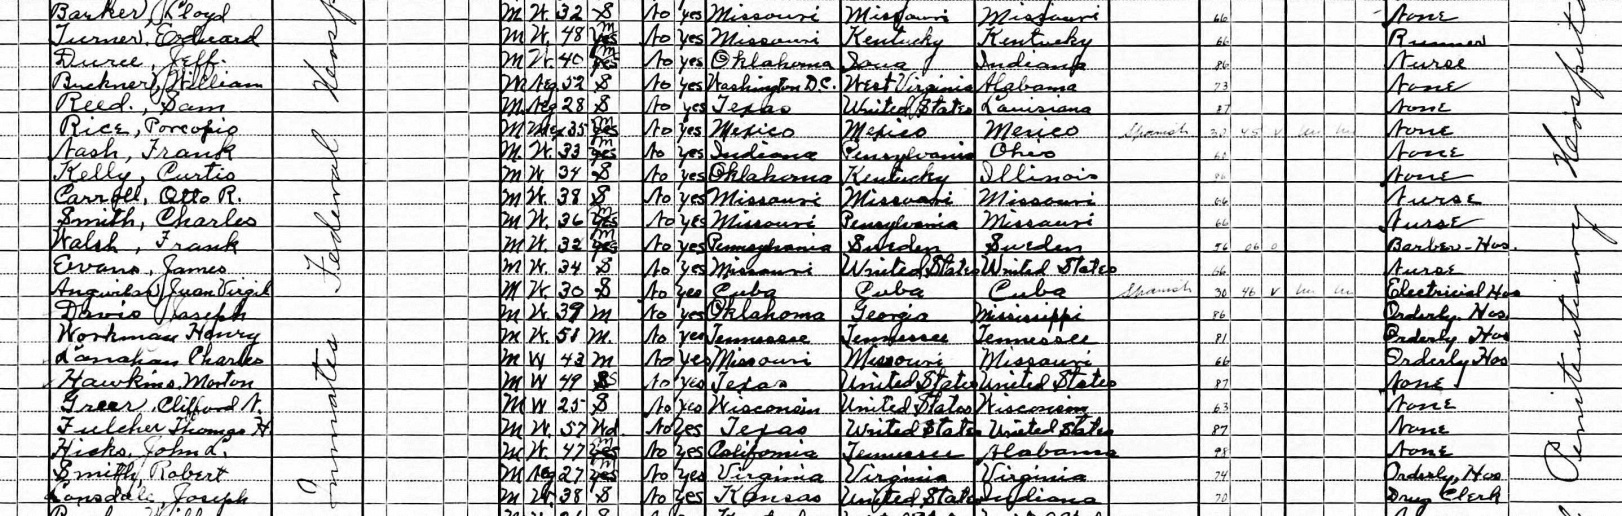 Barker, Cloyd M W. 32 S No yes Missouri Missouri Missouri 66 None
Turner, Edward M W. 48 M yes No yes Missouri Kentucky Kentucky 66 Runner
Duree, Jeff. M W. 40 M yes No yes Oklahoma Iowa Indiana 86 Nurse
Buckner, William M Neg 52 S No yes Washington D.C. West Virginia Alabama 73 None
Reed, Sam M Neg 28 S No yes Texas United States Louisiana 87 None
Rice, Porcopio M Mex 35 M yes No yes Mexico Mexico Mexico Spanish V None
Nash, Frank M. W. 33 M yes No yes Indiana Pensylvania Ohio None
Kelly, Curtis M W. 34 S No yes Oklahoma Kentucky Illinois 86 None
Carroll, Otto R. M W. 38 S No yes Missouri Missouri Missouri 66 Nurse
Smith, Charles M W. 36 M yes No yes Missouri Pensylvania Missouri 66 Nurse
Walsh, Frank M W. 32 M yes No yes Pennsylvania Sweden Sweden 56 06 0 Barber - Hos.
Evans, James M W. 34 S No yes Missouri United States United States 66 Nurse
Juan Virgil M W. 30 S No yes Cuba Cuba Cuba Spanish 30 46 V Electricial Hos
Davis Joseph M W. 39 M No yes Oklahoma Georgia Mississippi 86 Orderly. Hos.
Workman Henry M W. 51 M. No yes Tennessee Tennessee Tennessee 81 Orderly Hos
Lanahan Charles M W 43 M No yes Missouri Missouri Missouri 66 Orderly Hos
Hawkins, Morton M W 49 S No yes Texas United States United States 87 None
Greer, Clifford N. M W 25 S No yes Wisconsin United States Wisconsin 63 None
Fulcher Thomas H. M W. 57 Wd No yes Texas United States United States 87 None
Hicks, John L. M W. 47 M yes No yes California Tennessee Alabama 98 None
Smith, Robert M Neg 27 M yes No yes Virginia Virginia Virginia 74 Orderly, Hos
Lonsdale, Joseph M W. 38 S No yes Kansas United States Indiana 70 Drug Clerk
Inmates Federal Hosp
Penitentiary Hospital